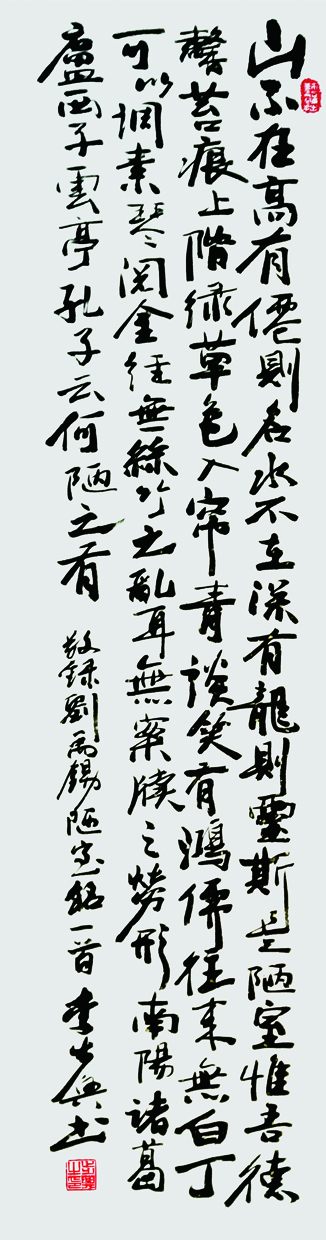 山不在高有僊則名水不在深有龍則靈斯是陋室惟吾德
馨苔痕上階綠草色入帘青談笑有鴻儒往来無白丁
可以調素琴閱金經無絲竹之亂耳無案牘之勞形南陽諸葛
廬西子雲亭孔子云何陋之有
敬錄劉禹錫陋室銘一首 李